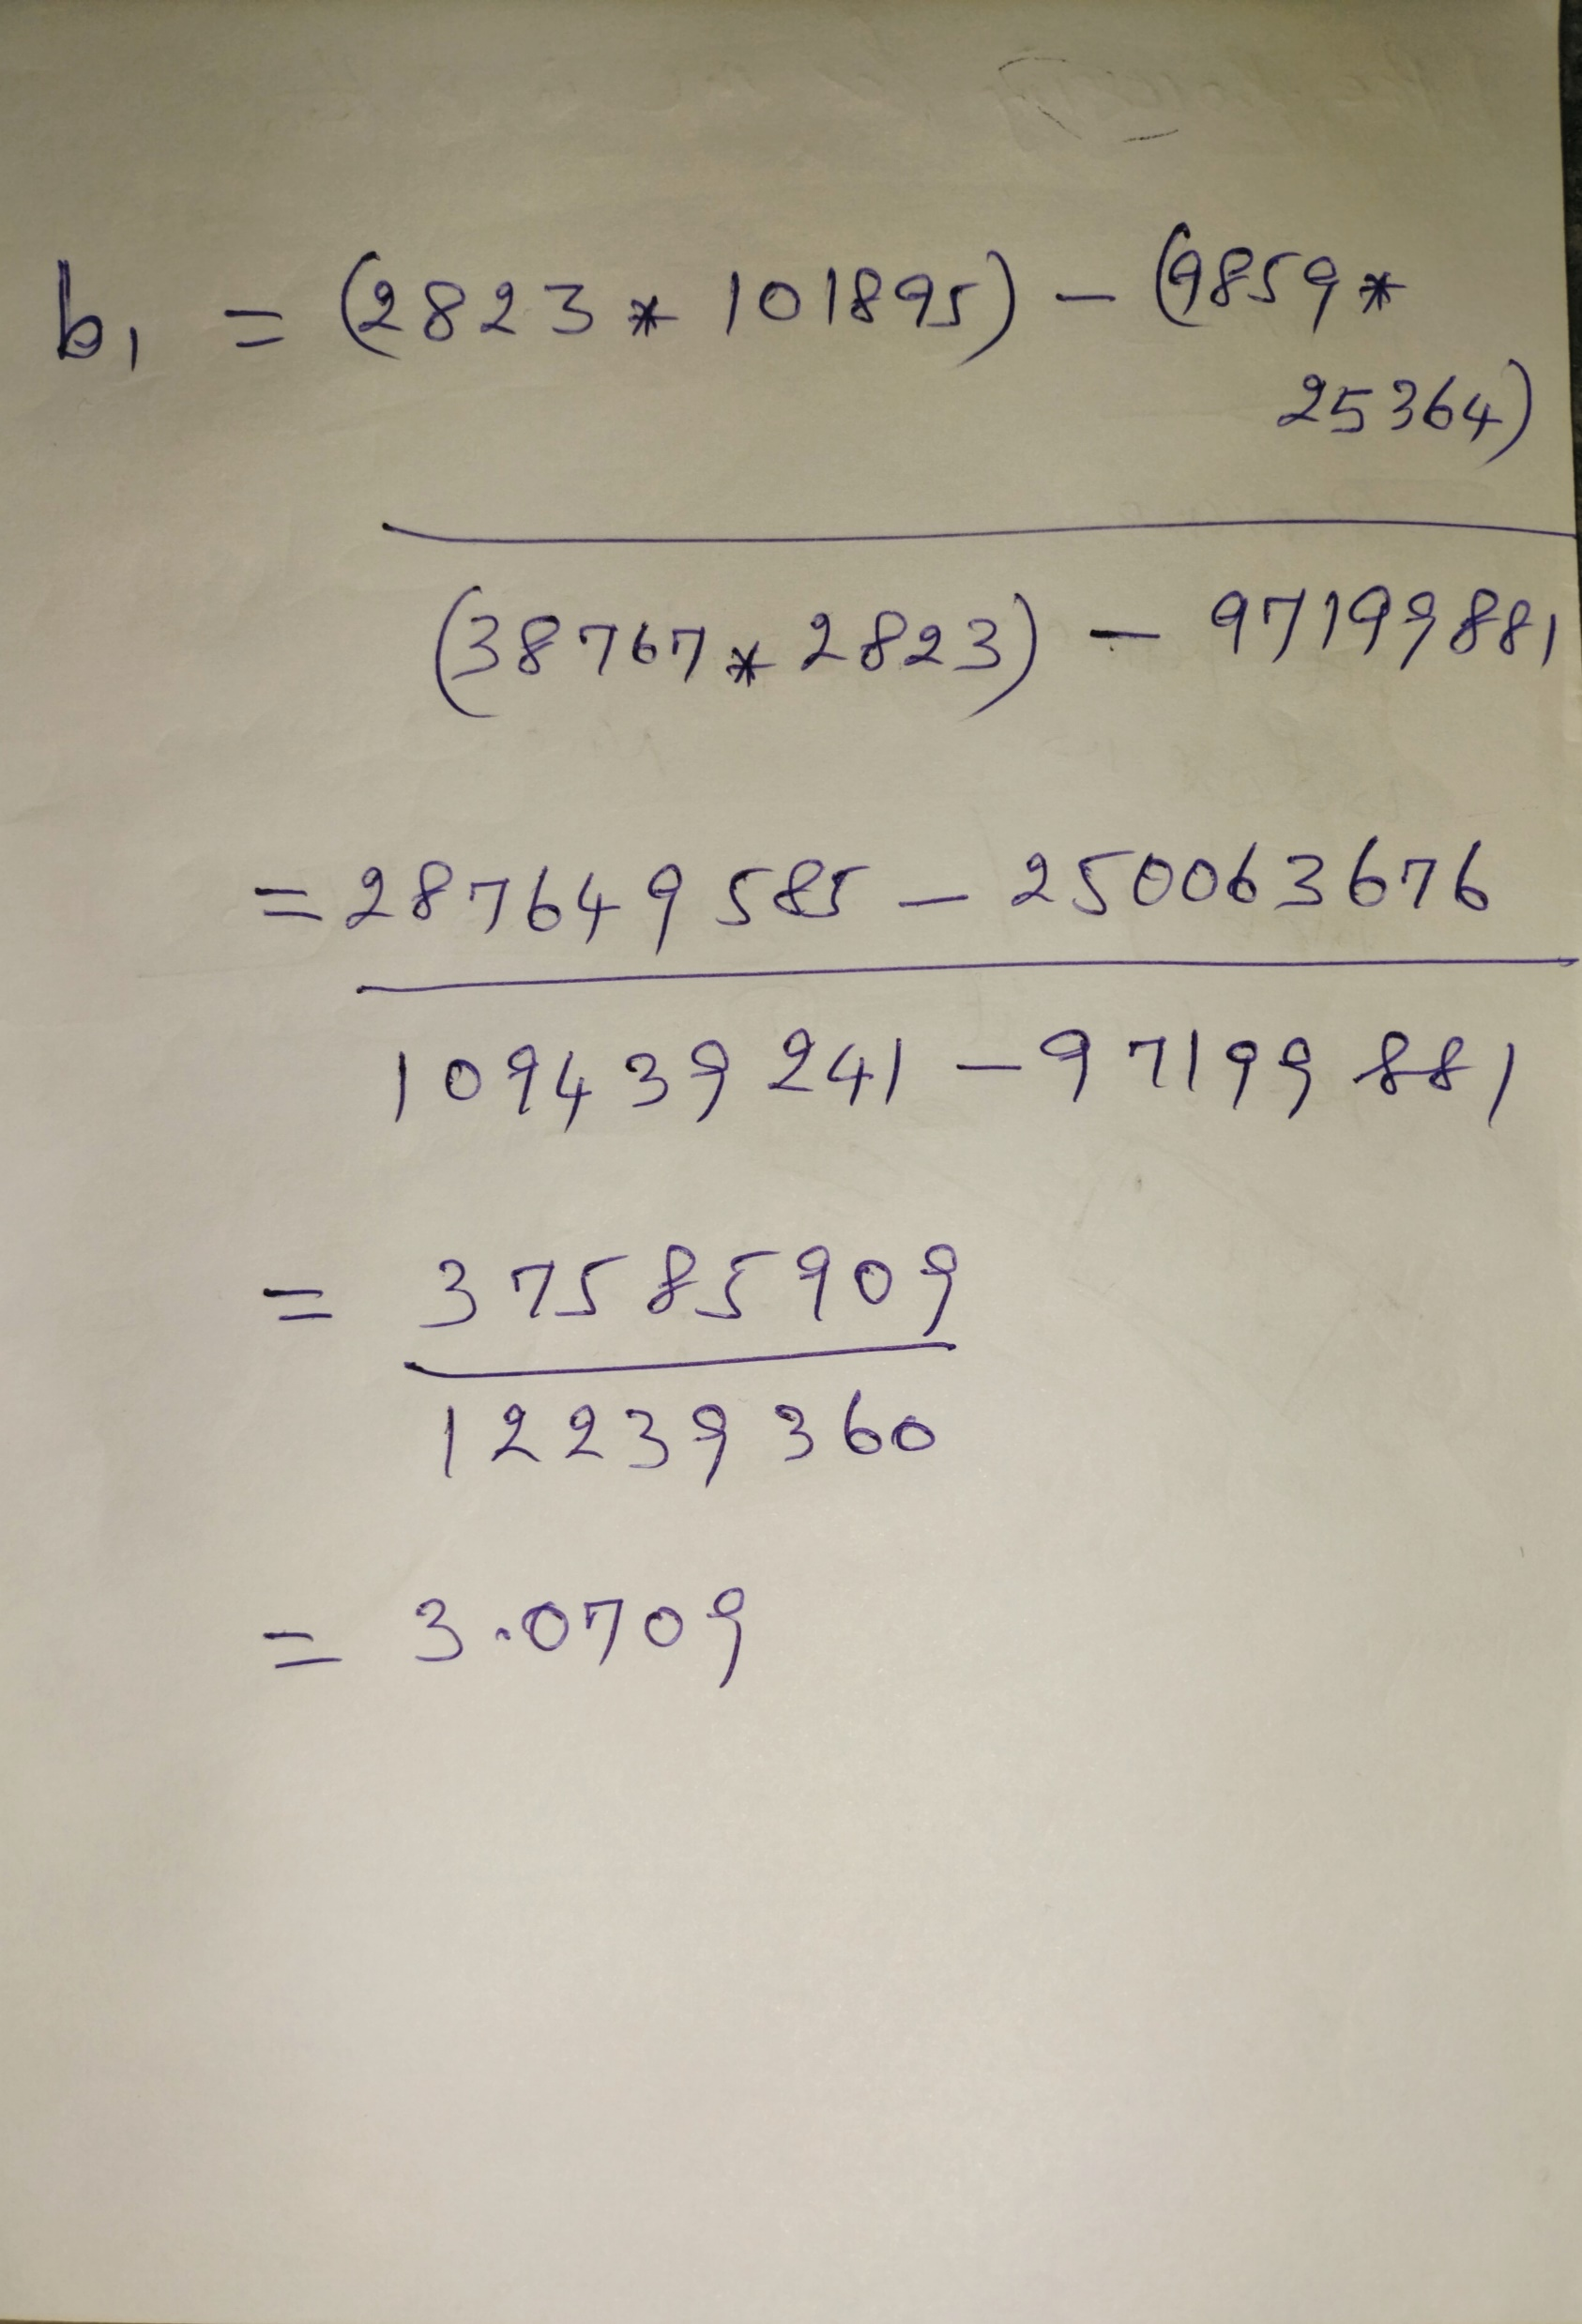 b₁ = (2823 * 101895) - (9859 *
25364)
(38767 * 2823) - 97199881
= 287649585 - 250063676
109439241 - 97199881
= 37585909
12239360
= 3.0709